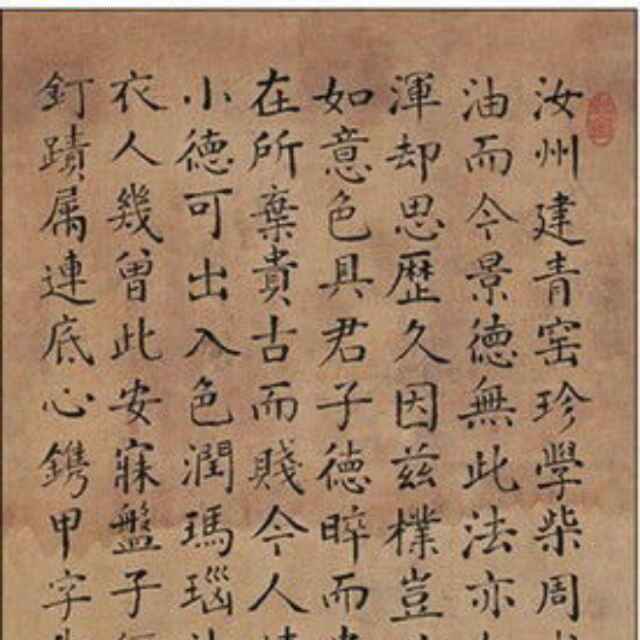 汝州建青窑珍學柴周
油而今景德無此法亦
渾却思歷久因兹樸豈
如意色具君子德晬而
在所棄貴古而賤今人
小德可出入色潤瑪瑙
衣人幾曾此安寐盤子
釘蹟属連底心鐫甲字